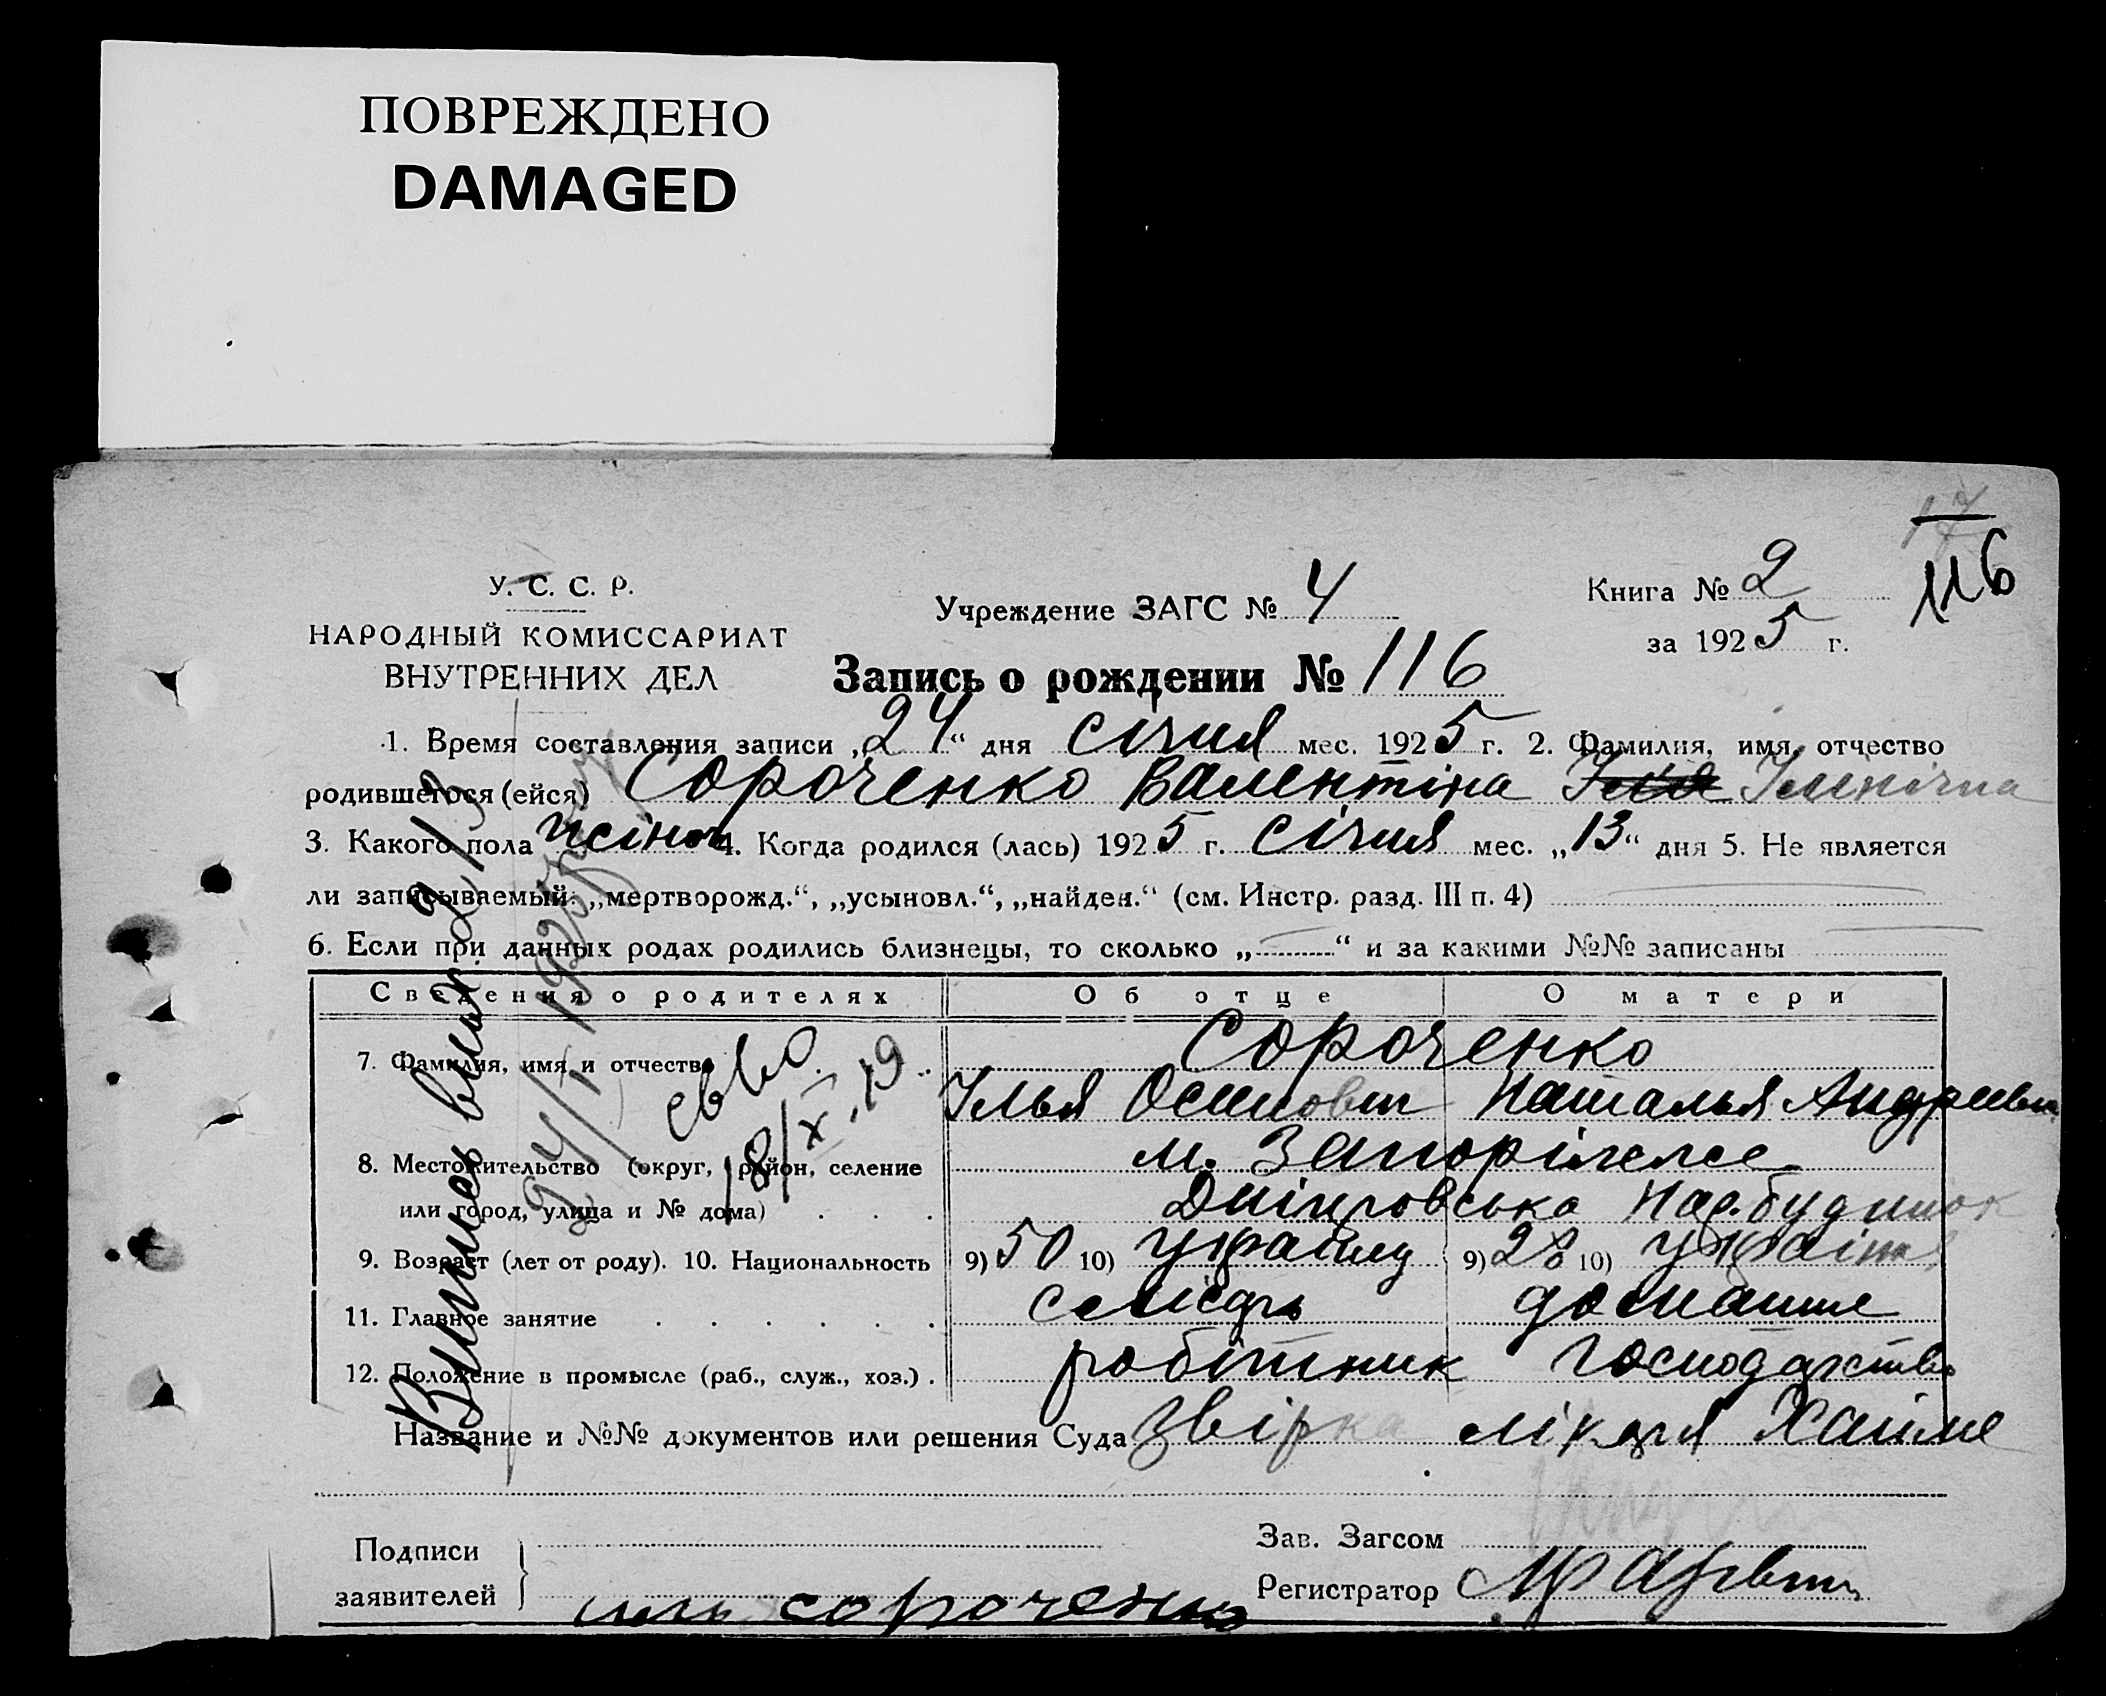 ПОВРЕЖДЕНО
DAMAGED
17
116
У. С. С. Р.
НАРОДНЫЙ КОМИССАРИАТ
ВНУТРЕННИХ ДЕЛ
Учреждение ЗАГС № 4
Книга № 2
за 1925 г.
Запись о рождении № 116
1. Время составления записи „24“ дня січня мес. 1925 г. 2. Фамилия, имя, отчество
родившегося (ейся) Сороченко Валентіна Іллінічна
3. Какого пола жіноч 4. Когда родился (лась) 1925 г. січня мес. „13“ дня 5. Не является
ли записываемый: „мертворожд.“, „усыновл.“, „найден.“ (см. Инстр. разд. III п. 4)
6. Если при данных родах родились близнецы, то сколько „ “ и за какими №№ записаны
Сведения о родителях Об отце О матери
7. Фамилия, имя и отчество Сороченко
Ілья Осипович Наталья Андреевн
8. Местожительство (округ, район, селение м. Запоріжже
или город, улица и № дома) Дніпровська Нар. будинок
9. Возраст (лет от роду). 10. Национальность 9) 50 10) українц 9) 28 10) україн
11. Главное занятие домашнє
12. Положение в промысле (раб., служ., хоз.) робітник господарство
Название и №№ документов или решения Суда Звірка
Подписи
заявителей
сороченко
Зав. Загсом
Регистратор
24/I 1925
18/X.19